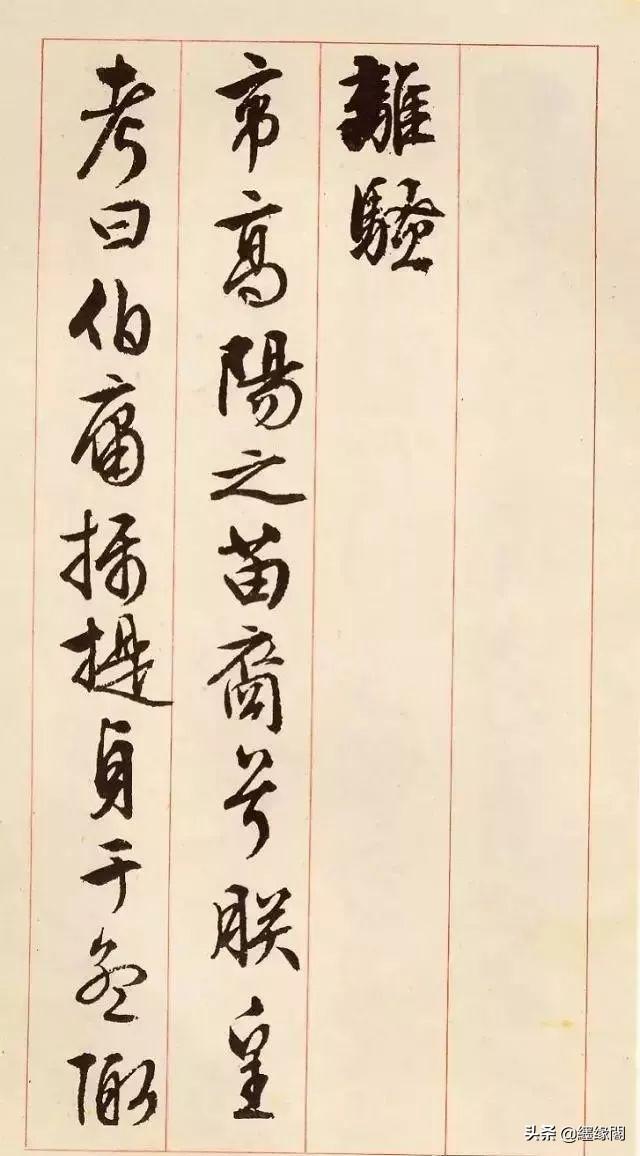 離騷
帝高陽之苗裔兮朕皇
考曰伯庸攝提貞于孟陬
头条